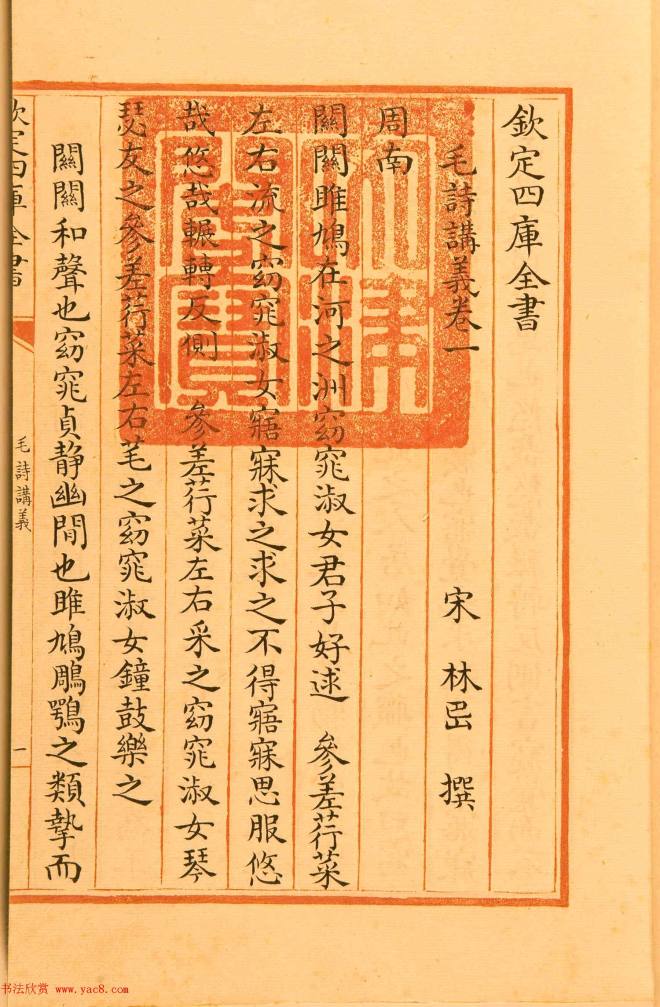 欽定四庫全書
毛詩講義卷一
宋 林岊 撰
周南
關關雎鳩在河之洲窈窕淑女君子好逑 參差荇菜
左右流之窈窕淑女寤寐求之求之不得寤寐思服悠
哉悠哉輾轉反側 參差荇菜左右采之窈窕淑女琴
瑟友之參差荇菜左右芼之窈窕淑女鐘鼓樂之
關關和聲也窈窕貞静幽閒也雎鳩鵰鶚之類摯而
欽定四庫全書
毛詩講義
一
书法欣赏 www.yac8.com